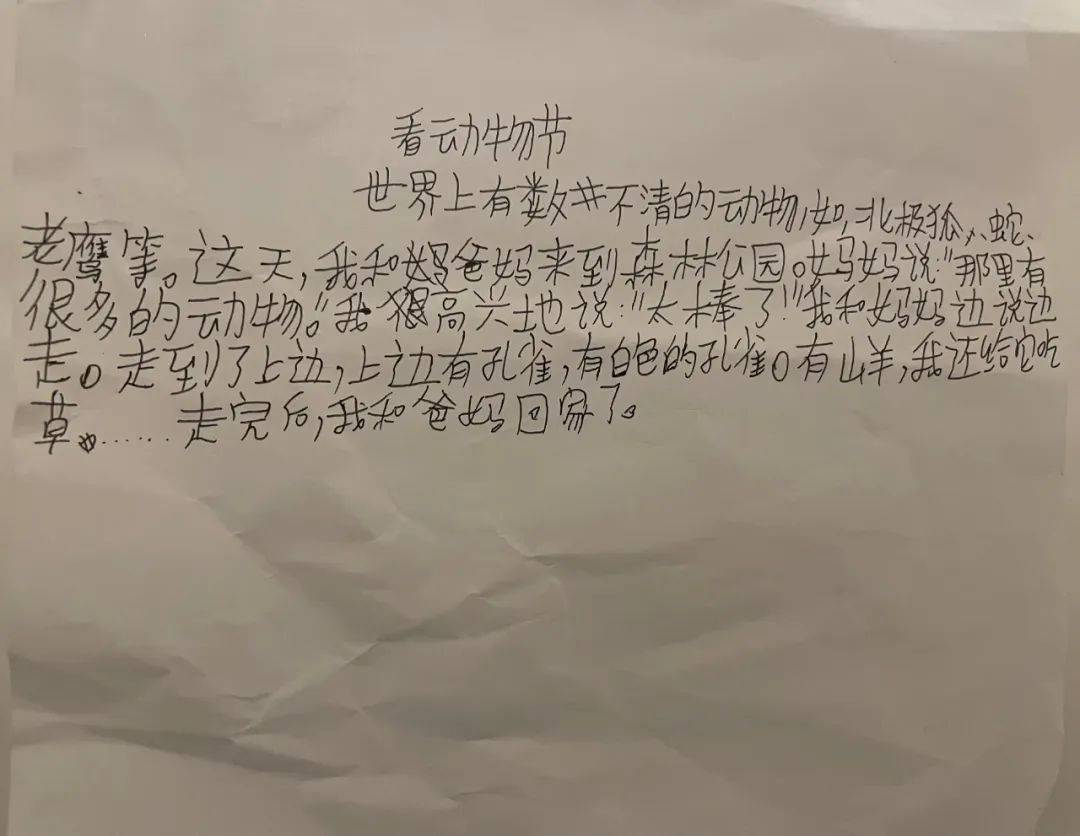 看动物节
世界上有数不清的动物,如,北极狐、蛇、
老鹰等。这天,我和爸妈来到森林公园。妈妈说:"那里有
很多的动物。"我很高兴地说:"太棒了!"我和妈妈边说边
走。走到了上边,上边有孔雀,有白色的孔雀。有山羊,我还给它吃
草。……走完后,我和爸妈回家了。